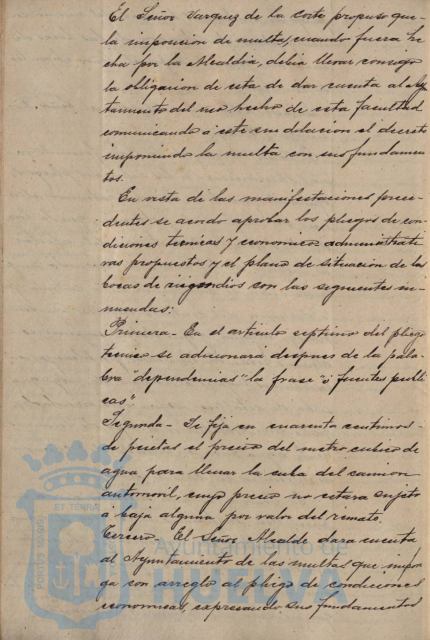 El Señor Vazquez de la Corte propuso que
la imposicion de multa, cuando fuera he
cha por la Alcaldia, debia llevar consigo
la obligacion de esta de dar cuenta al Ayun
tamiento del uso hecho de esta facultad
comunicando a este sin delacion el decreto
imponiendo la multa con sus fundamen
tos.
En vista de las manifestaciones prece
dentes se acordo aprobar los pliegos de con
diciones tecnicas y economico administrati
vas propuestos y el plano de situacion de las
bocas de con las siguientes en
miendas:
Primera - En el articulo septimo del pliego
tecnico se adicionará despues de la pala
bra "dependencias" la frase "o fuentes publi
cas".
Segunda - Se fija en cuarenta centimos
de pesetas el precio del metro cubico de
agua para llenar la cuba del camion
automovil, cuyo precio no estara sujeto
a baja alguna por valor del remate.
Tercero - El Señor Alcalde dara cuenta
al Ayuntamiento de las multas que impon
ga con arreglo al pliego de condiciones
economicas, expresando sus fundamentos
Ayuntamiento de
HUELVA